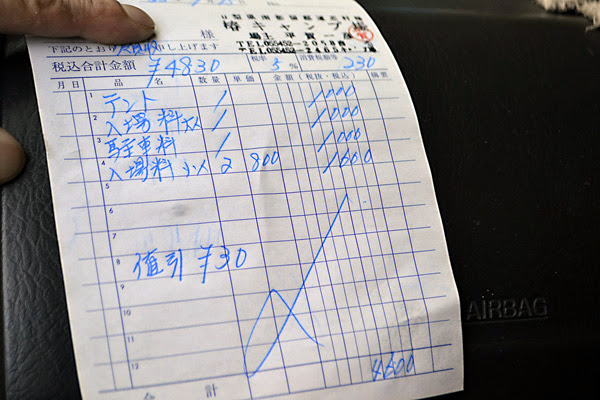 椿キャンプ場
様
場主 平賀一彦
下記のとおり 申し上げます
税込合計金額 ¥4830 税率 5% 消費税額等 230
月 日 品名 数量 単価 金額(税抜・税込) 摘要
1 テント 1 1000
2 入場料大人 1 1000
3 駐車料 1 1000
4 入場料 小人 2 800 1600
5
6
7
8 値引 ¥30
9
10
11
12
合計 4600
AIRBAG